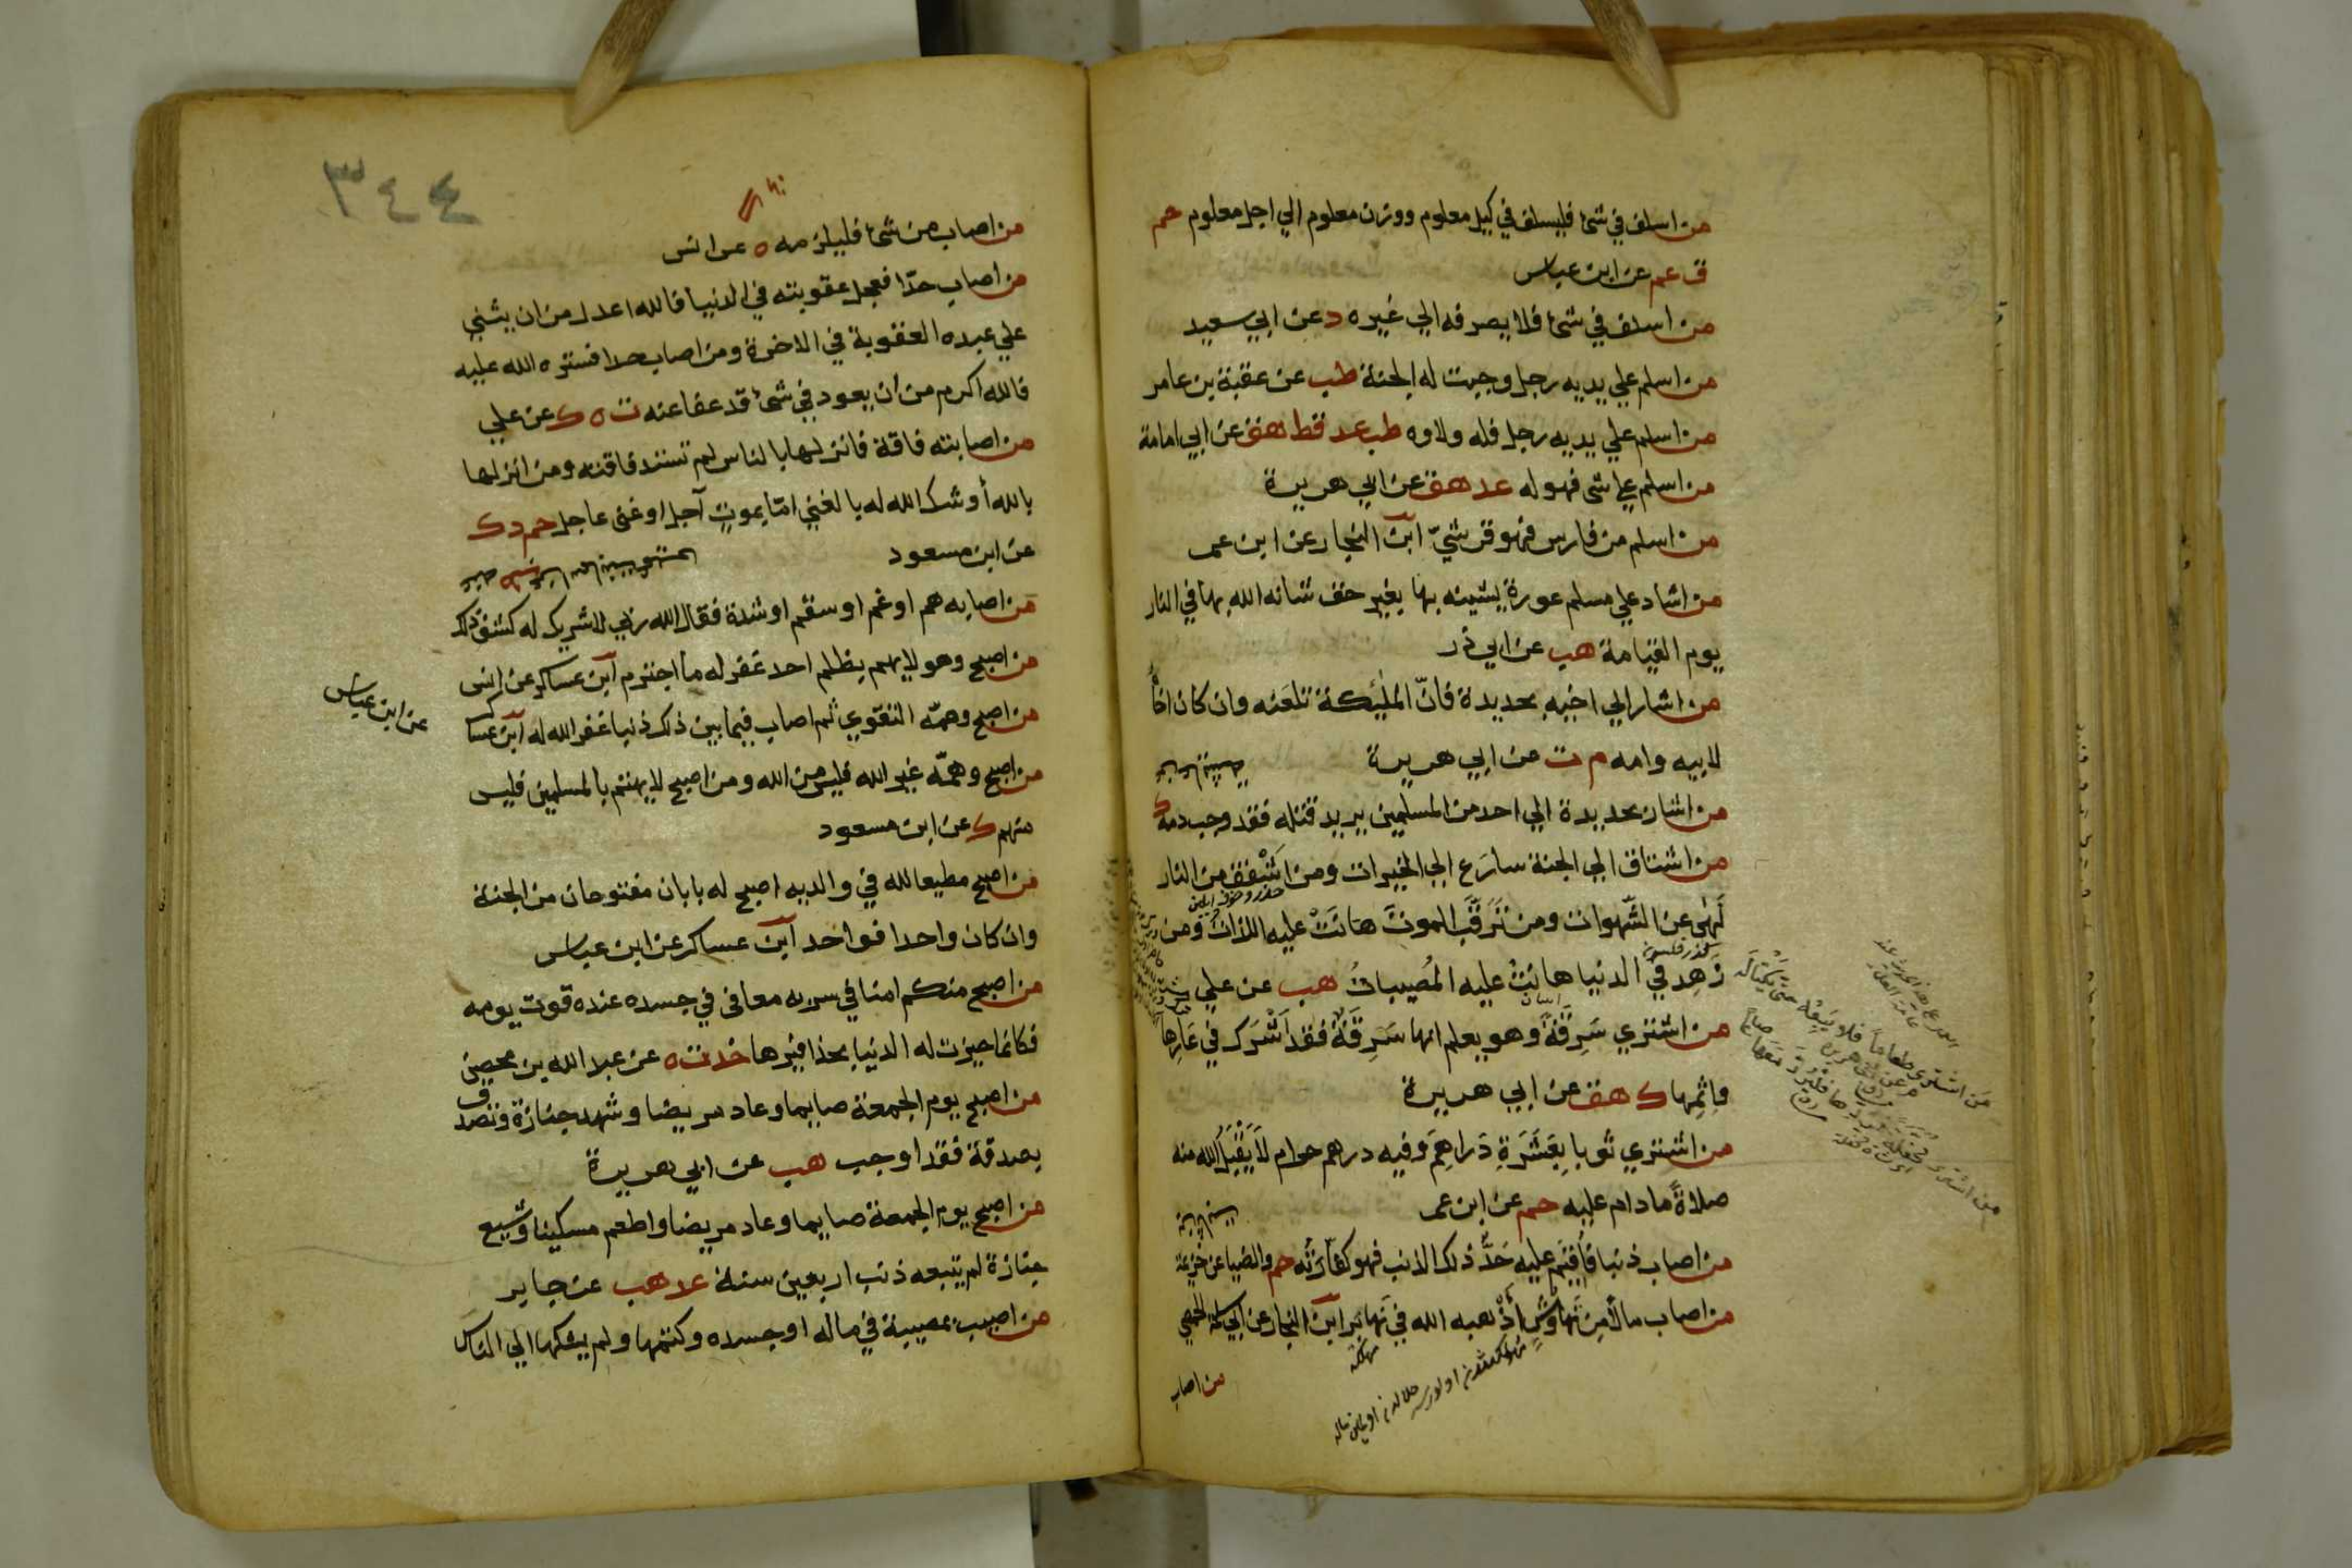 من اسلف في شئ فليسلف في كيل معلوم ووزن معلوم الي اجل معلوم حم
ق عم عن ابن عباس
من اسلف في شئ فلا يصرفه الي غيره د عن ابي سعيد
من اسلم علي يديه رجل وجبت له الجنة طب عن عقبة بن عامر
من اسلم علي يديه رجل فله ولاوه طب عد قط هق عن ابي امامة
من اسلم علي شئ فهو له عد هق عن ابي هريرة
من اسلم من فارس فهو قرشيّ ابن النجار عن ابن عمر
من اشاد علي مسلم عورة يشينه بها بغير حق شانه الله بها في النار
يوم القيامة هب عن ابي ذر
من اشار الي اخيه بحديدة فانّ الملئكة تلعنه وان كان اخاً
لابيه وامه م ت عن ابي هريرة
من اشار بحديدة الي احد من المسلمين يريد قتله فقد وجب دمه ك
من اشتاق الي الجنة سارَع الي الخيرات ومن اَشْفَق من النار
لَهٰى عن الشّهوات ومن تَرَقَّبَ الموتَ هانَتْ عليه اللذات ومن
زَهِد في الدنيا هانَتْ عليه المُصيبات هب عن علي
من اشتري سَرِقَةً وهو يعلم انها سَرِقَةٌ فقد اَشْرَك في عَارِها
واِثمِها ك هق عن ابي هريرة
من اشتري ثوبا بِعَشَرَةِ دَراهِمَ وفيه درهم حرام لاَ يَقْبَلُ الله منه
صلاةً ما دام عليه حم عن ابن عمر
من اصاب ذنبا فاُقيْمَ عليه حَدُّ ذلك الذنب فهو كفّارَتُه حم والضيا عن خزيمة
من اصاب مالاً مِن نَهاوِشَ اَذْهبه الله في نَهابِر ابن النجار عن ابي سلمة الحمصي
من اصاب
من اشترى طعاماً فلا يَبِعْه حتى يَكْتاله
٣٤٤
من اصاب من شئ فليلزمه ه عن انس
من اصاب حدّا فعجل عقوبته في الدنيا فالله اعدل من ان يثني
علي عبده العقوبة في الاخرة ومن اصاب حدا فستره الله عليه
فالله اكرم من ان يعود في شئ قد عفا عنه ت ه ك عن علي
من اصابته فاقة فانزلها بالناس لم تسند فاقته ومن انزلها
بالله أوشك الله له بالغني امّا بموتٍ آجل او غنى عاجل حم د ك
عن ابن مسعود
من اصابه هم او غم او سقم او شدة فقال الله ربي لا شريك له كشف ذلك
من اصبح وهو لا يهم بظلم احد غفر له ما اجترم ابن عساكر عن انس
من اصبح وهمّه التقوي ثم اصاب فيما بين ذلك ذنبا غفر الله له ابن عساكر
عن ابن عباس
من اصبح وهمّه غير الله فليس من الله ومن اصبح لا يهتم بالمسلمين فليس
منهم ك عن ابن مسعود
من اصبح مطيعا لله في والديه اصبح له بابان مفتوحان من الجنة
وان كان واحدا فواحد ابن عساكر عن ابن عباس
من اصبح منكم امنا في سربه معافى في جسده عنده قوت يومه
فكانما حيزت له الدنيا بحذافيرها خد ت ه عن عبد الله بن محصن
من اصبح يوم الجمعة صايما وعاد مريضا وشهد جنازة وتصدق
بصدقة فقد اوجب هب عن ابي هريرة
من اصبح يوم الجمعة صايما وعاد مريضا واطعم مسكينا وشيع
جنازة لم يتبعه ذنب اربعين سنة عد هب عن جابر
من اصيب بمصيبة في ماله او جسده وكتمها ولم يشكها الي الناس